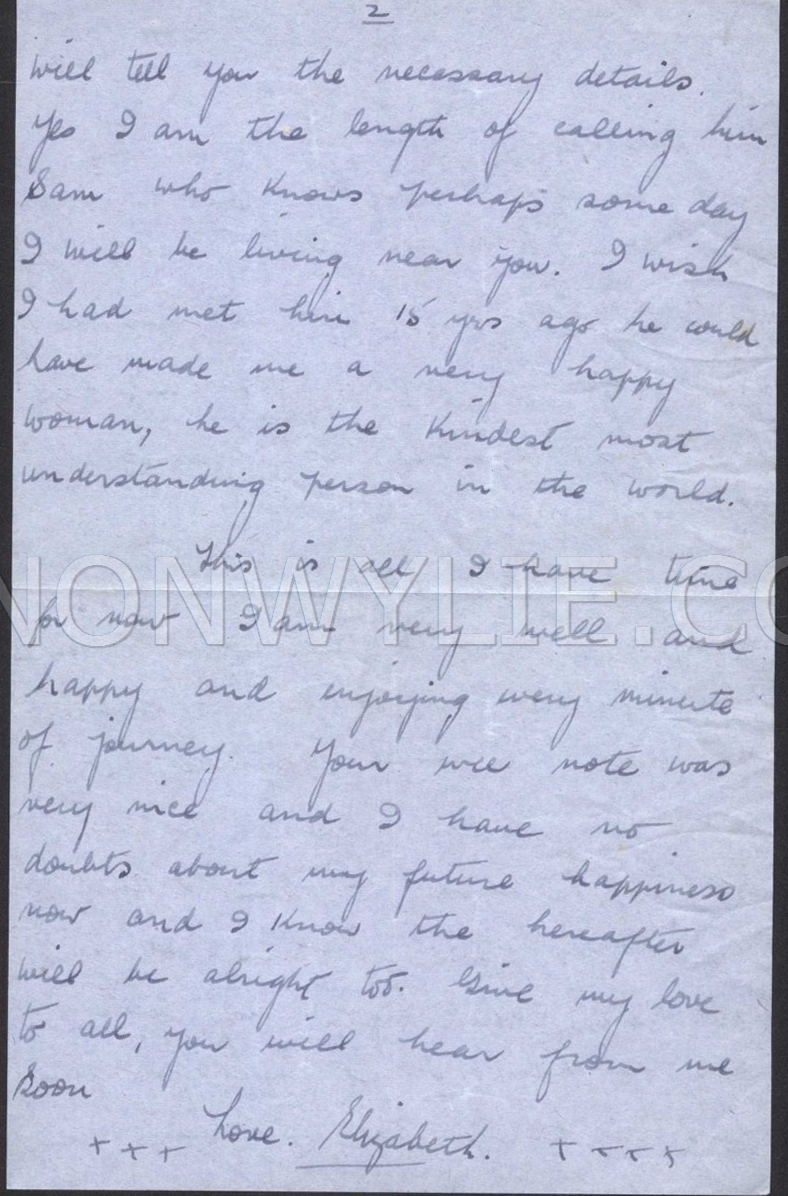 2
will tell you the necessary details.
Yes I am the length of calling him
Sam who knows perhaps some day
I will be living near you. I wish
I had met him 15 yrs ago he could
have made me a very happy
woman, he is the kindest most
understanding person in the world.
This is all I have time
for now I am very well and
NONWYLIE.CO
happy and enjoying every minute
of journey. Your wee note was
very nice and I have no
doubts about my future happiness
now and I know the hereafter
will be alright too. Give my love
to all, you will hear from me
soon
Love. Elizabeth.
+ + + + + + +